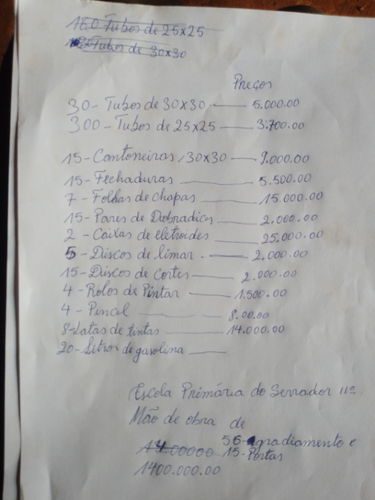 150 Tubos de 25x25
Tubos de 30x30
Preços
30 - Tubos de 30x30 — 5.000.00
300 - Tubos de 25x25 — 3.700.00
15 - Cantoneiras 30x30 — 9.000.00
15 - Fechaduras — 5.500.00
7 - Folhas de chapas — 15.000.00
15 - Pares de Dobradiças — 2.000.00
2 - Caixas de eletroides — 25.000.00
5 - Discos de limar — 2.000.00
15 - Discos de cortes — 2.000.00
4 - Rolos de Pintar — 1.500.00
4 - Pincel — 8.00.00
8 - Latas de tintas — 14.000.00
20 - Litros de gasolina —
Escola Primária do Serrador
Mão de obra de
56 - gradiamento e
15 - Portas
1400.000.00